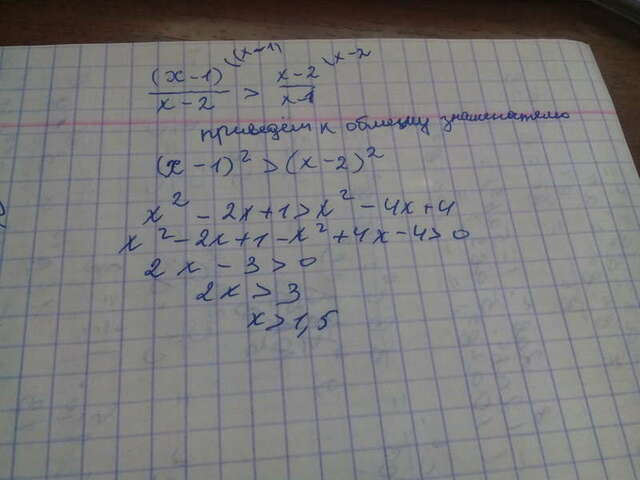 (x-1)\(x-1) / x-2 > x-2\x-2 / x-1
приведём к общему знаменателю
(x-1)²>(x-2)²
x²-2x+1>x²-4x+4
x²-2x+1-x²+4x-4>0
2x-3>0
2x>3
x>1,5